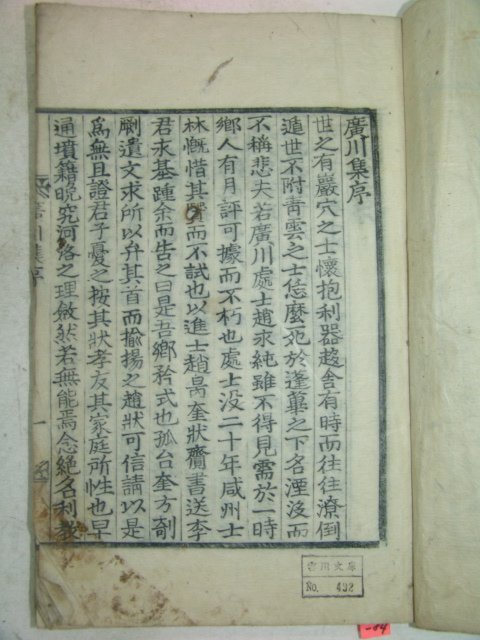 廣川集序
世之有巖穴之士懷抱利器趍舍有時而往往潦倒
遁世不附靑雲之士恁麽死於蓬蓽之下名湮沒而
不稱悲夫若廣川處士趙求純雖不得見需於一時
鄕人有月評可據而不朽也處士沒二十年咸州士
林慨惜其賢而不試也以進士趙昺奎狀齎書送李
君永基踵余而告之曰是吾鄕矜式也孤台奎方剞
劂遺文求所以弁其首而揄揚之趙狀可信請以是
爲無且證君子憂之按其狀孝友其家庭所性也早
通墳籍晩究河洛之理斂然若無能焉念絶名利敎
廣川集序
一
雲川文庫
No. 432
-04